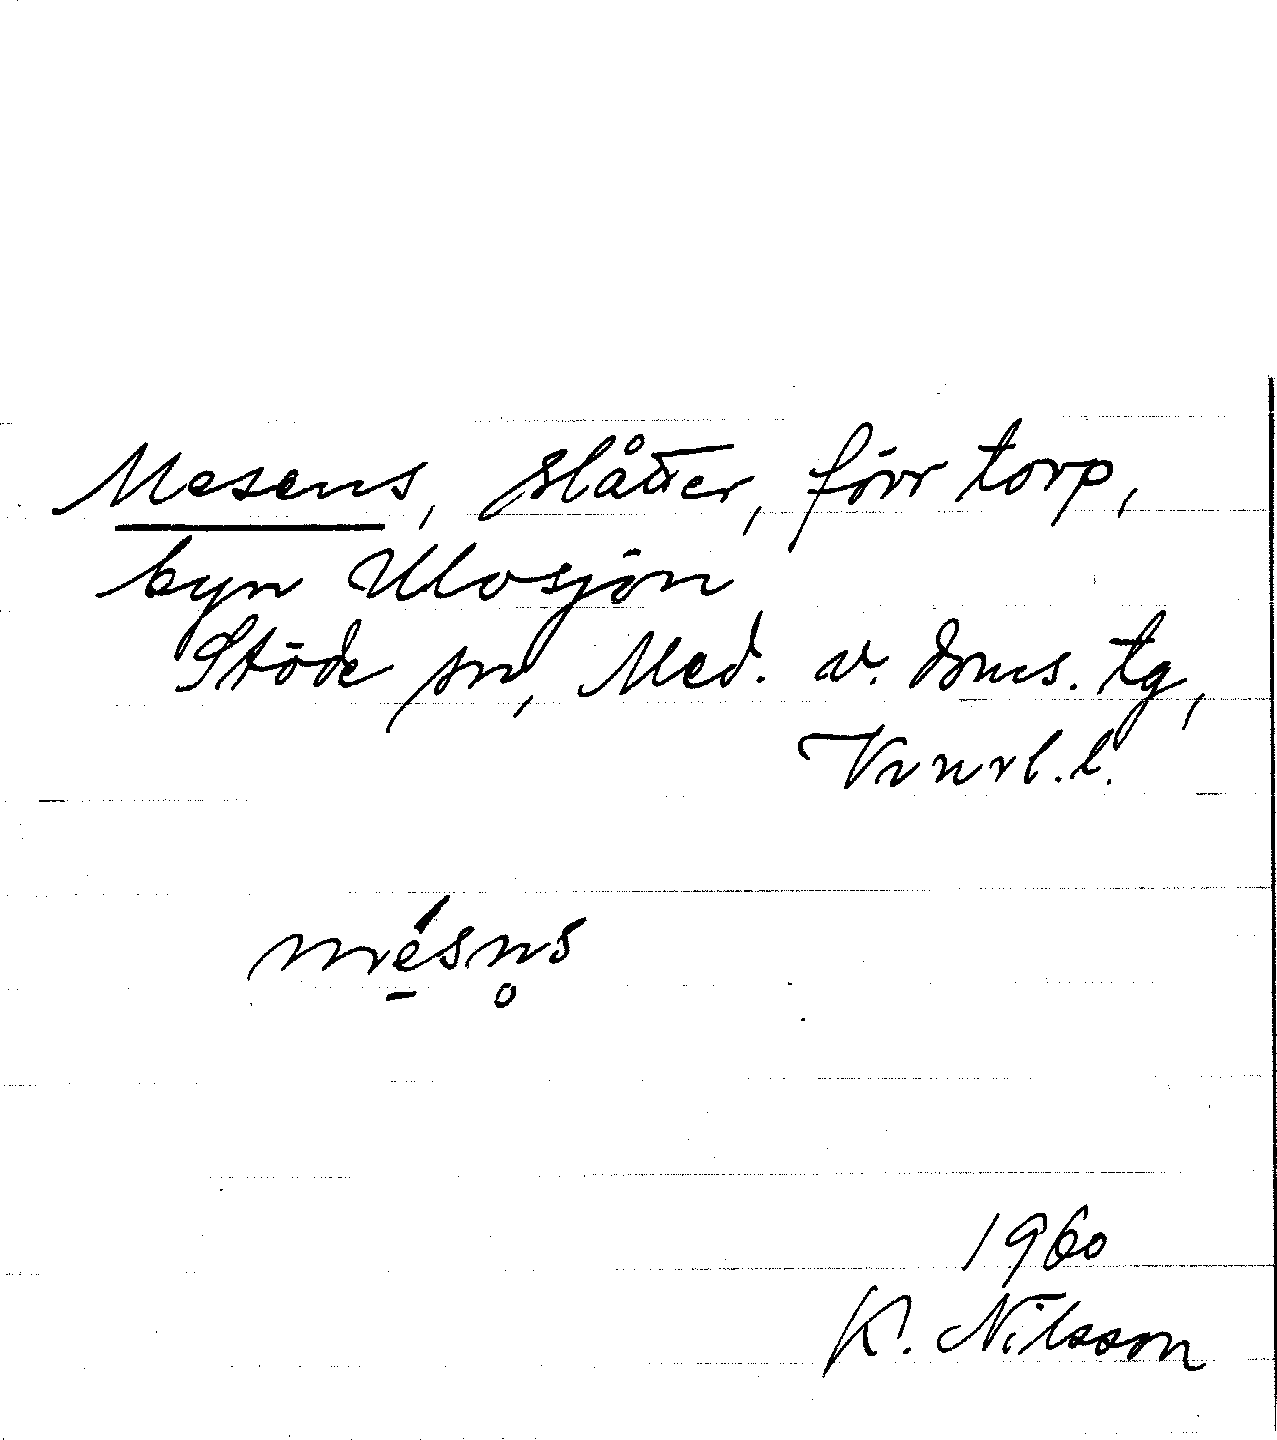 Mesens, slåtter, förr torp,
byn Ulvsjön
Stöde sn, Med. v. doms. tg,
Vrnrl. l.
mésn̥s
1960
K. Nilsson